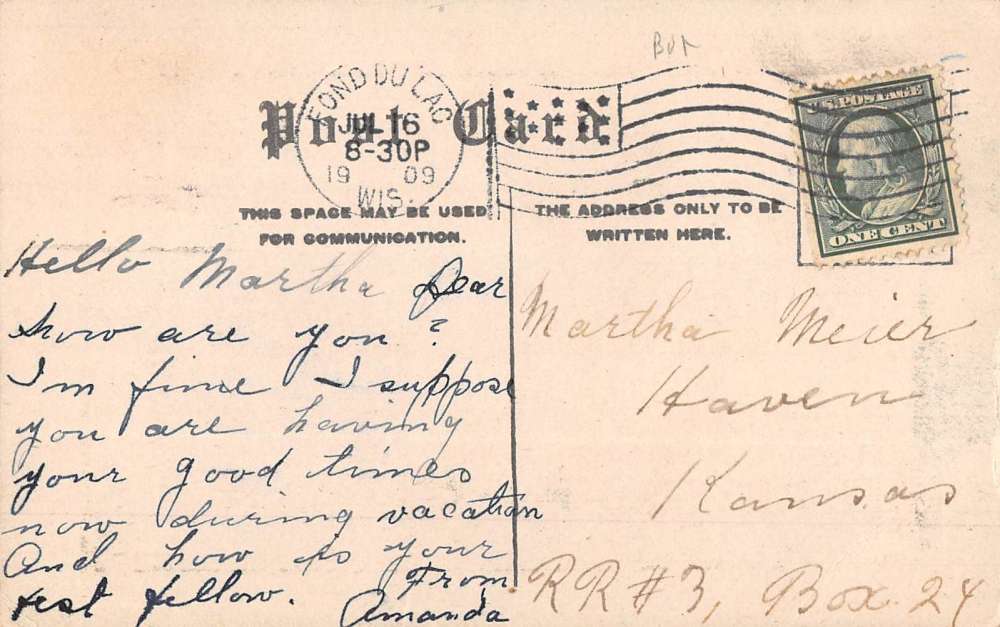 BUR
FOND DU LAC
JUL 16
8-30P
19 09
WIS.
Post Card
U.S. POSTAGE
ONE CENT
THIS SPACE MAY BE USED
FOR COMMUNICATION.
THE ADDRESS ONLY TO BE
WRITTEN HERE.
Hello Martha Dear
how are you ?
I'm fine I suppose
you are having
your good times
now during vacation
And how is your
best fellow. From
Amanda
Martha Meier
Haven
Kansas
RR #3, Box 24